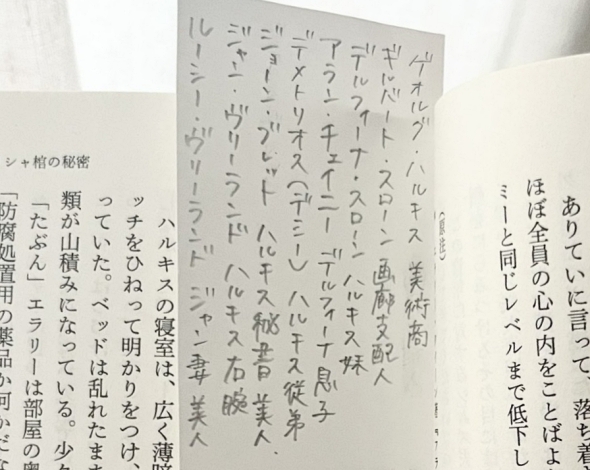 ありていに言って、落ち着
ほぼ全員の心の内をことばよ
ミーと同じレベルまで低下し
ゲオルグ・ハルキス 美術商
ギルバート・スローン 画廊支配人
デルフィーナ・スローン ハルキス妹
アラン・チェイニー デルフィーナ息子
デメトリオス(デミー) ハルキス従弟
ジョーン・ブレット ハルキス秘書 美人、
ジャン・ヴリーランド ハルキス右腕
ルーシー・ヴリーランド ジャン妻 美人
シャ棺の秘密
ハルキスの寝室は、広く薄暗
ッチをひねって明かりをつけ、
っていた。ベッドは乱れたまま
類が山積みになっている。少
「たぶん」エラリーは部屋の奥
「防腐処置用の薬品か何かだな